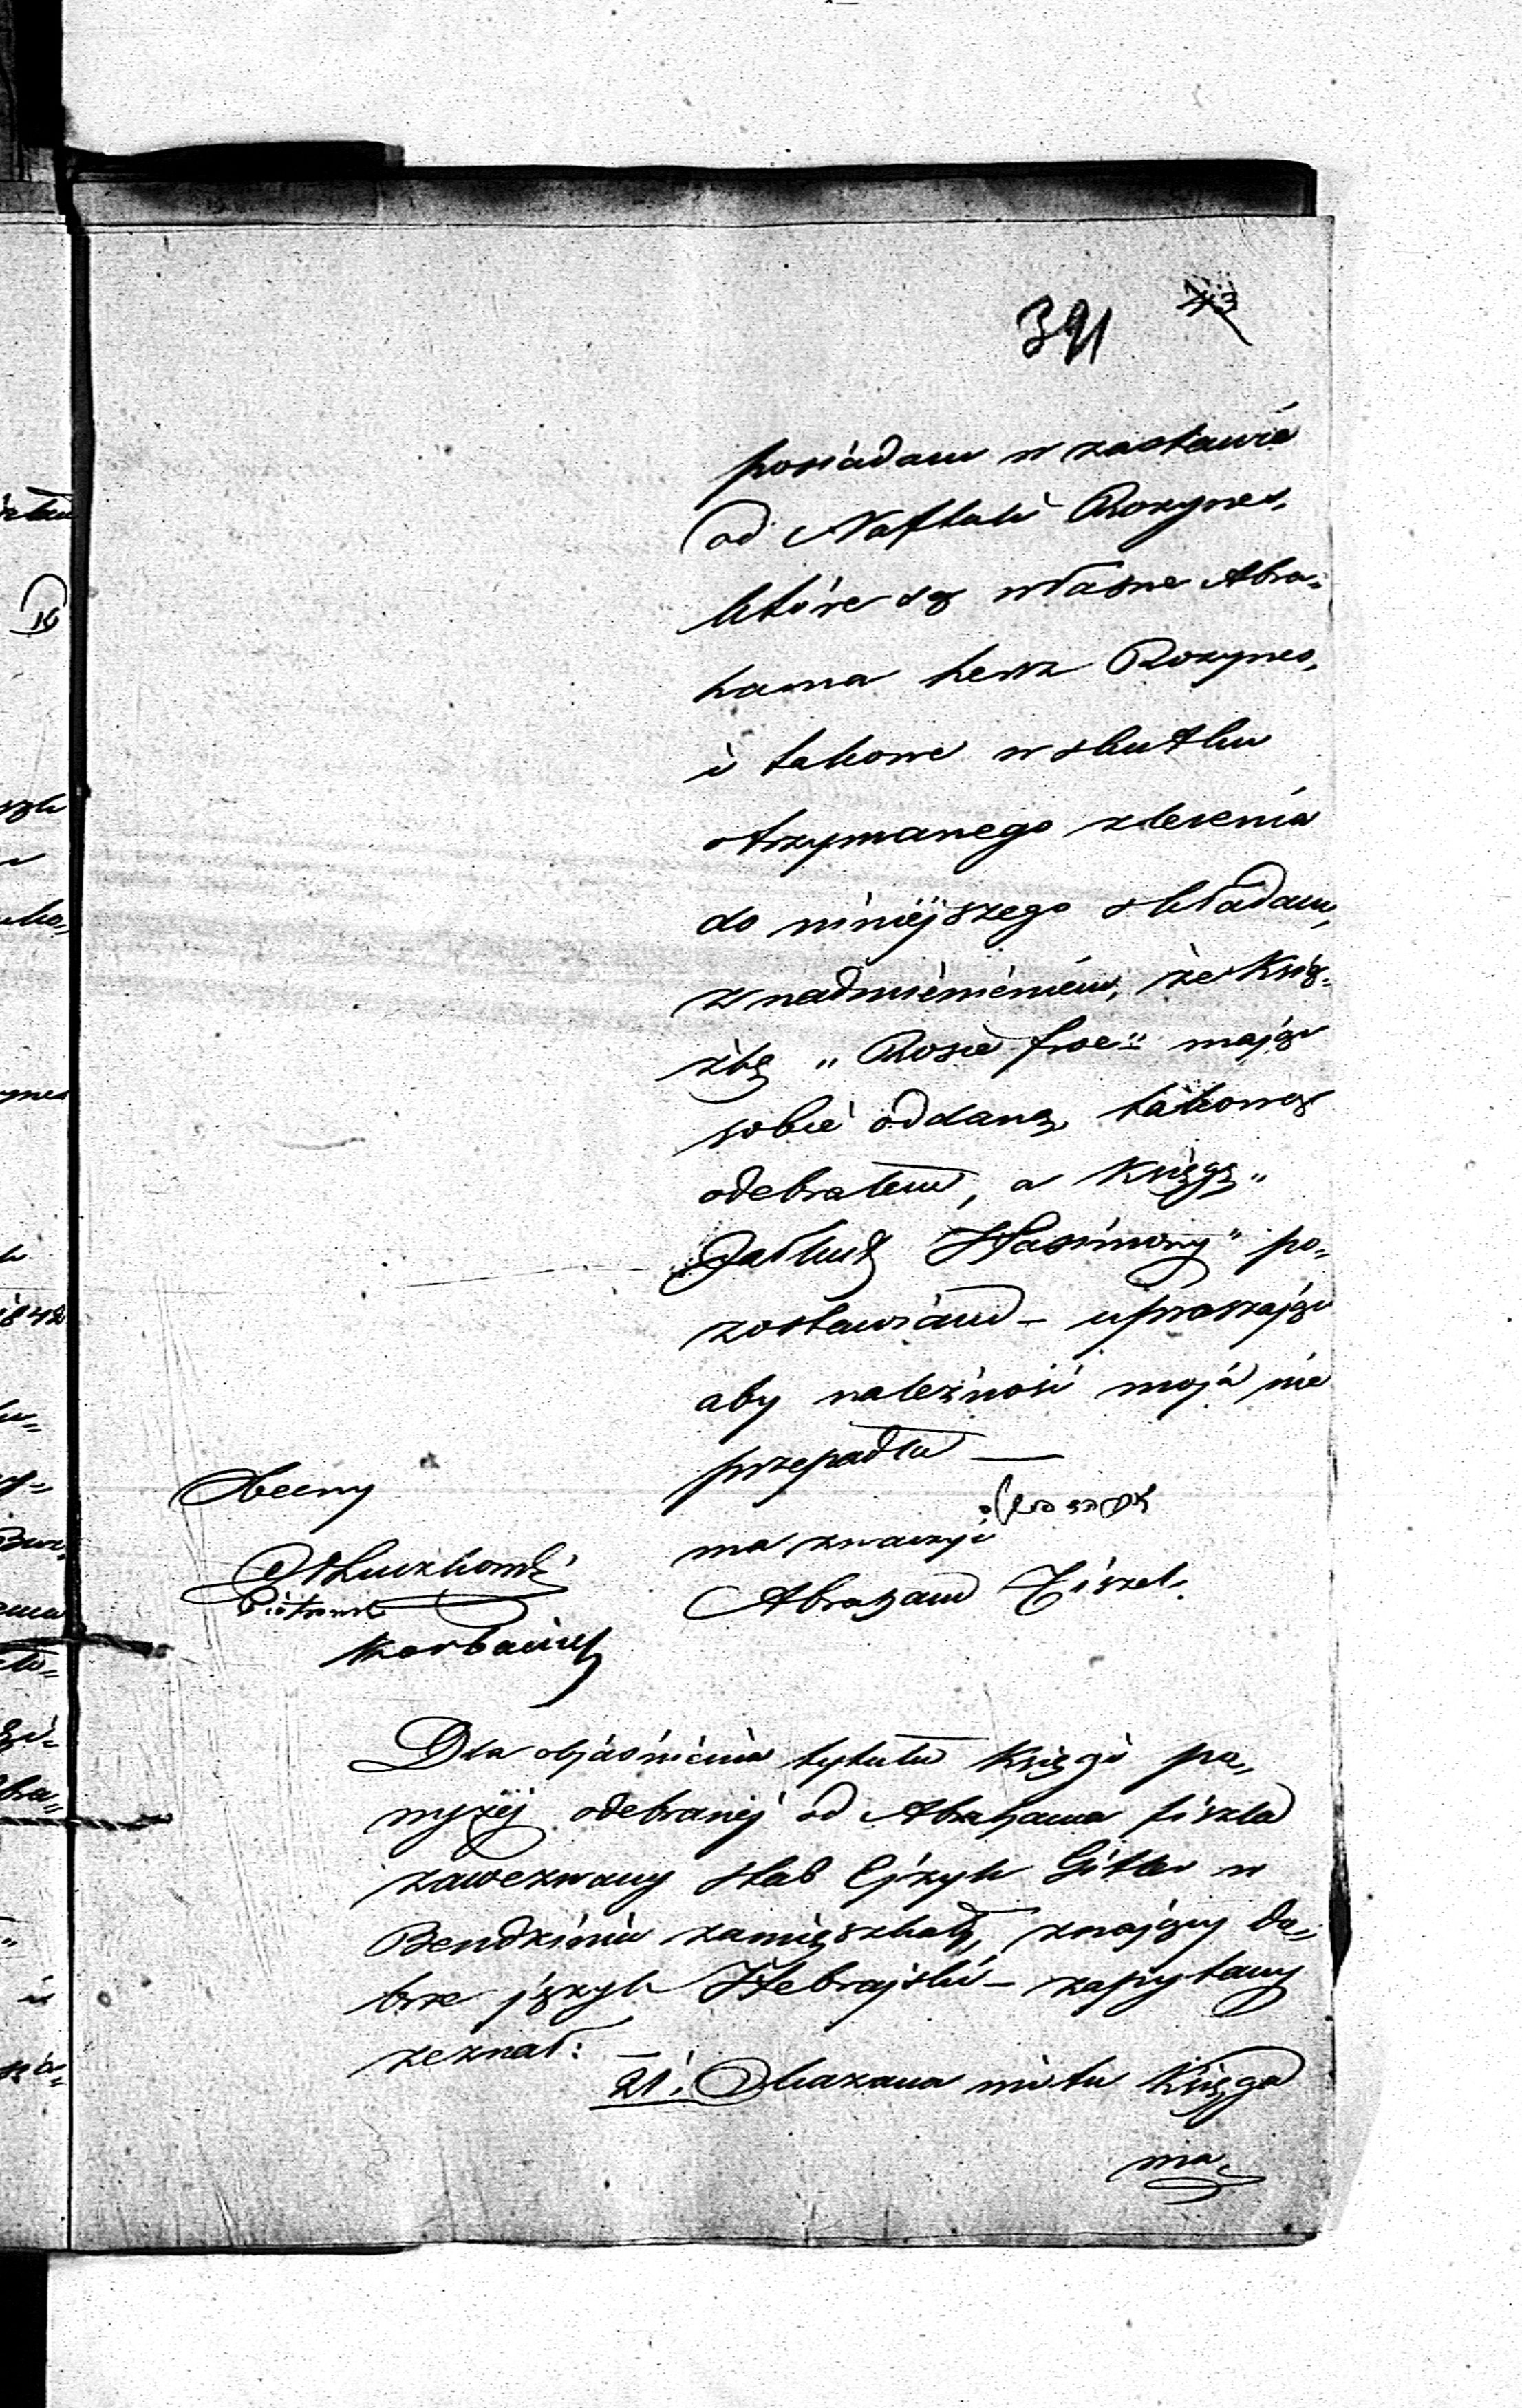 391 43
posiadam w zastawie
od Naftuli Rozynes,
które są własne Abra-
hama Hersz Rozynes,
i takowe w skutku
otrzymanego zlecenia
do niniejszego składam,
z nadmienieniem, że Ksią-
żkę „Rosie froe" mając
sobie oddaną, takową
odebrałem, a Księgę „
Jałkut Szasimony" po-
zostawiam – upraszając
aby należność moja nie
przepadła —
Obecny
ma znaczyć
Abraham Fiszel.
Piotrowski
Dla objaśnienia tytułu Księgi po-
wyżej odebranej od Abrahama Fiszla
zawezwany Stab Ejzyk Gitler w
Bendzinie zamięszkały, znający do-
brze język Hebrajski – zapytany
zeznał:
21. Okazana mi tu Księga
ma
1842